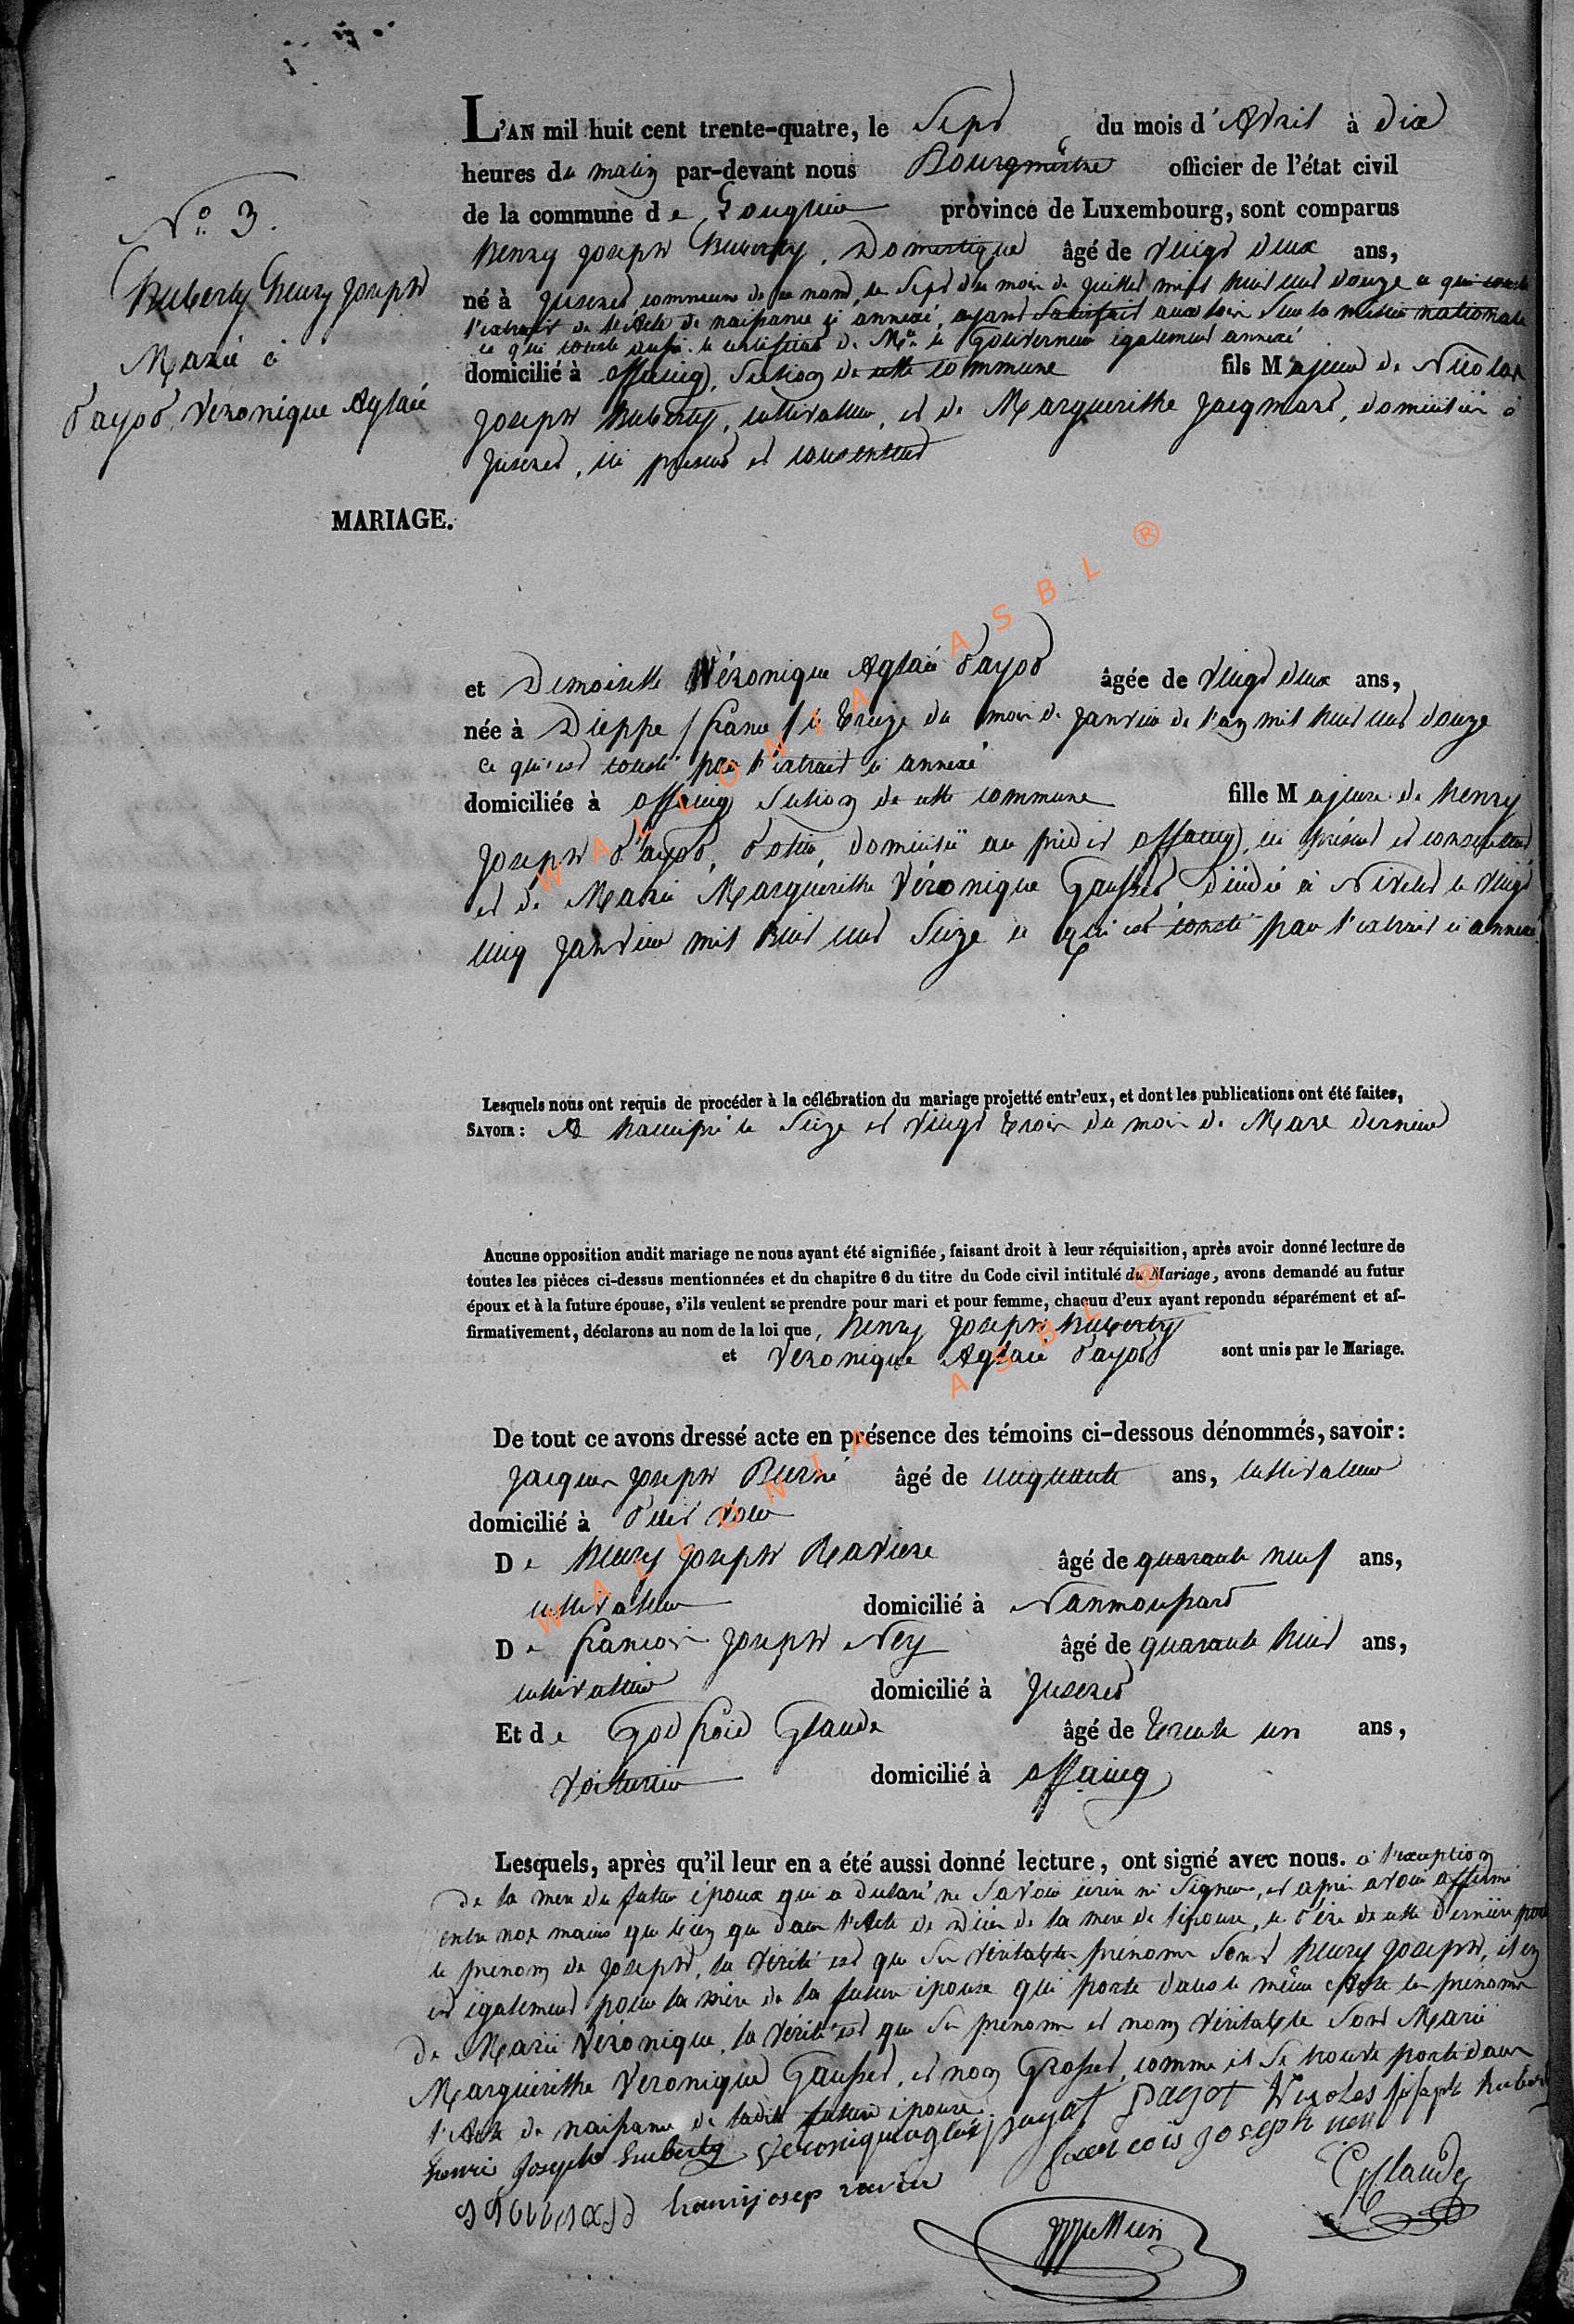 L'AN mil huit cent trente-quatre, le Sept du mois d'Avril à dix
heures du matin par-devant nous Bourgmestre officier de l'état civil
de la commune de province de Luxembourg, sont comparus
Henry Joseph Huberty, Domestique âgé de vingt deux ans,
né à Juseret commune de ce nom, le Sept du mois de juillet mil huit cent douze ce qui conste
l'extrait de l'acte de naissance ci annexé, ayant Satisfait aux loix Sur la milice nationale
ce qui conste aussi le certificat de Mr. le Gouverneur également annexé
domicilié à offaing, Section de cette commune fils Majeur de Nicolas
Joseph Huberty, cultivateur, et de Marguerithe Jacqmard, domiciliés à
Juseret, ici présent et consentent
N° 3.
Huberty henry Joseph
Marié à
payot Veronique Aglaé
MARIAGE.
et Demoiselle Véronique Aglaé payot âgée de vingt deux ans,
née à Dieppe / france / le treize du mois de janvier de l'an mil huit cent douze
ce qui est consté par l'extrait ci annexé
domiciliée à offaing Section de cette commune fille Majeure de henry
Joseph payot, potier, domicilié au prédit offaing, ici présent et consentant
et de Marie Marguerithe Véronique Gausset Décédée à le vingt
cinq Janvier mil huit cent Seize ce qui est consté par l'extrait ci annexé
Lesquels nous ont requis de procéder à la célébration du mariage projetté entr'eux, et dont les publications ont été faites,
SAVOIR : A le Seize et vingt trois du mois de Mars dernier
Aucune opposition audit mariage ne nous ayant été signifiée, faisant droit à leur réquisition, après avoir donné lecture de
toutes les pièces ci-dessus mentionnées et du chapitre 6 du titre du Code civil intitulé du Mariage, avons demandé au futur
époux et à la future épouse, s'ils veulent se prendre pour mari et pour femme, chacun d'eux ayant repondu séparément et af-
firmativement, déclarons au nom de la loi que, henry Joseph huberty
et Veronique Aglaé payot sont unis par le Mariage.
De tout ce avons dressé acte en présence des témoins ci-dessous dénommés, savoir :
Jacques Joseph âgé de cinquante ans, cultivateur
domicilié à
De henry Joseph Raviere âgé de quarante neuf ans,
cultivateur domicilié à Nanmoussart
De francois Joseph Ney âgé de quarante huit ans,
cultivateur domicilié à Juseret
Et de Godfroid Glaude âgé de trente un ans,
voiturier domicilié à offaing
Lesquels, après qu'il leur en a été aussi donné lecture, ont signé avec nous. à l'exception
de la mere du futur époux qui a declaré ne Savoir écrire ni Signer, et après avoir affirmé
entre nos mains que bien que dans l'acte de Décès de la mere de l'épouse, le père de cette Dernière porte
le prénom de Joseph, la vérité est que Ses véritables prénoms Sont henry Joseph, il en
est également pour la mère de la future épouse qui porte dans le même acte les prénoms
de Marie Véronique, la vérité est que Ses prénoms et nom véritable Sont Marie
Marguerithe Veronique Gausset, et non Grosset, comme il Se trouve porté dans
l'acte de naissance de ladite future épouse.
henri Joseph huberty Veronique aglaé payot payot Nicolas joseph huberty
francois joseph neÿ
henrij josep ravier
G Claude
WALLONIA ASBL ®
WALLONIA ASBL ®